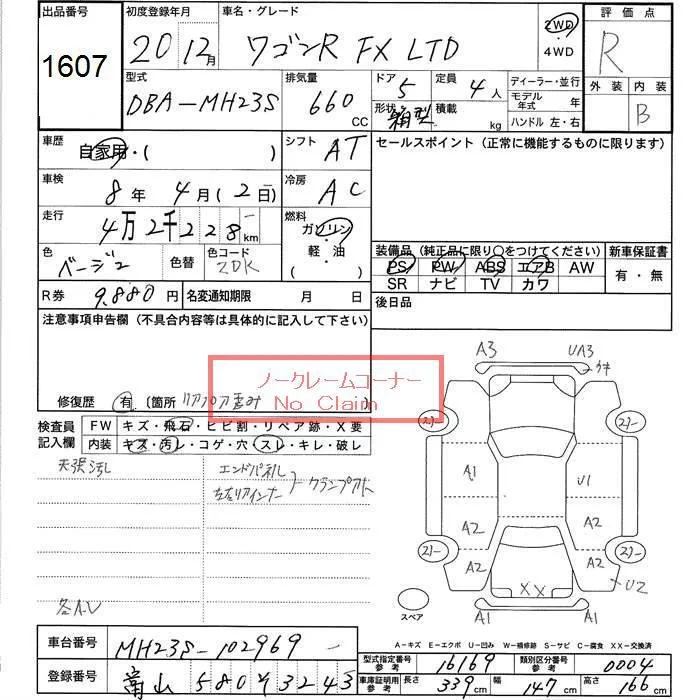 出品番号 初度登録年月 車名・グレード 評価点
1607 20 12月 ワゴンR FX LTD 2WD R
4WD
型式 排気量 ドア 定員 ディーラー・並行 外装 内装
DBA-MH23S 660 CC 5 4人 モデル年式 年 B
形状 箱型 積載 kg ハンドル 左・右
車歴 自家用・( ) シフト AT セールスポイント(正常に機能するものに限ります)
車検 8年 4月(2日) 冷房 AC
走行 4万2千228km 燃料 ガソリン・軽油・( )
色 ベージュ 色替 色コード ZDK
装備品(純正品に限り○をつけてください) 新車保証書
PS PW ABS エアB AW 有・無
SR ナビ TV カワ
R券 9,880円 名変通知期限 月 日 後日品
注意事項申告欄(不具合内容等は具体的に記入して下さい)
ノークレームコーナー
No Claim
修復歴 有 〔箇所
検査員記入欄 FW キズ・飛石・ヒビ割・リペア跡・X要
内装 キズ・汚レ・コゲ・穴・スレ・キレ・破レ
天張汚し エンドパネル
左右リアインナー クランプアト
A3 UA3
A1 U1
A2 A2
A2 A2
U2
XX
A1 A1
スペア
A-キズ E-エクボ U-凹み W-補修跡 S-サビ C-腐食 XX-交換済
車台番号 MH23S-102969
型式指定番号 参考 16169 類別区分番号 参考 0004
登録番号 富山 580 3243
車庫証明用 参考 長さ 339cm 幅 147cm 高さ 166cm